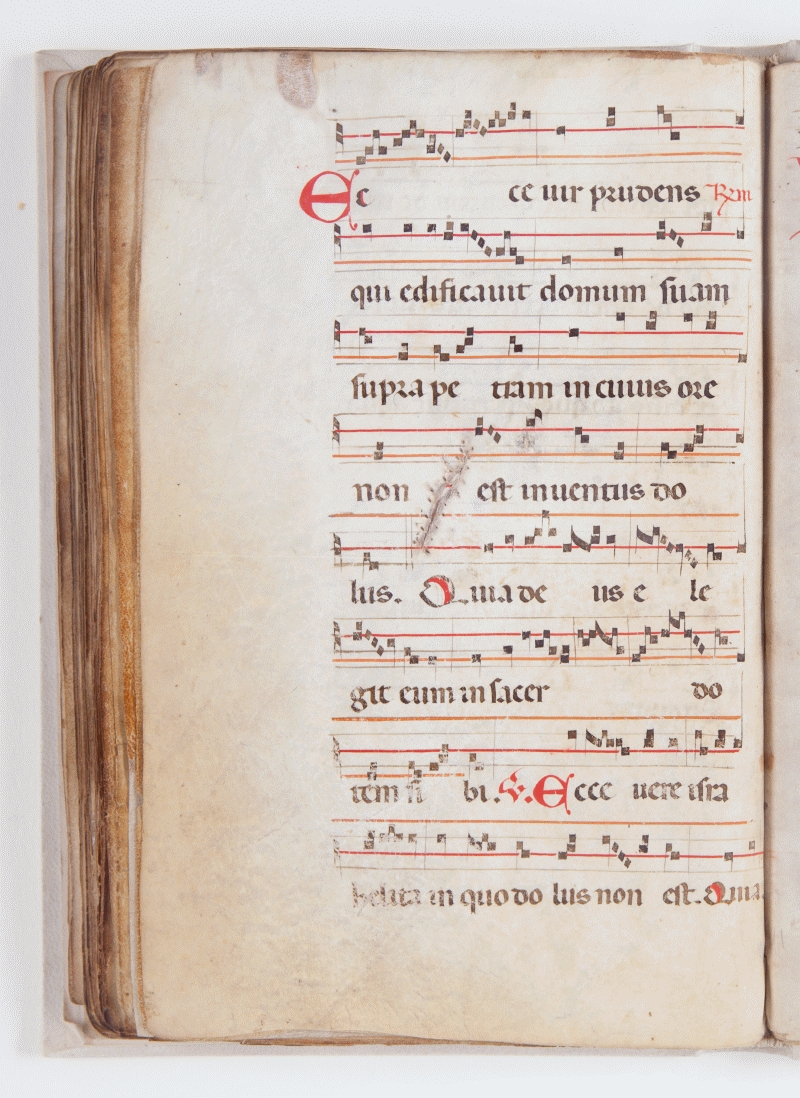 Ec ce uir prudens Rm
qui edificauit domum suam
supra pe tram in cuius ore
non est inuentus do
lus. Quia de us e le
git eum in sacer do
tem si bi. V. Ecce uere isra
helita in quo do lus non est. Quia.